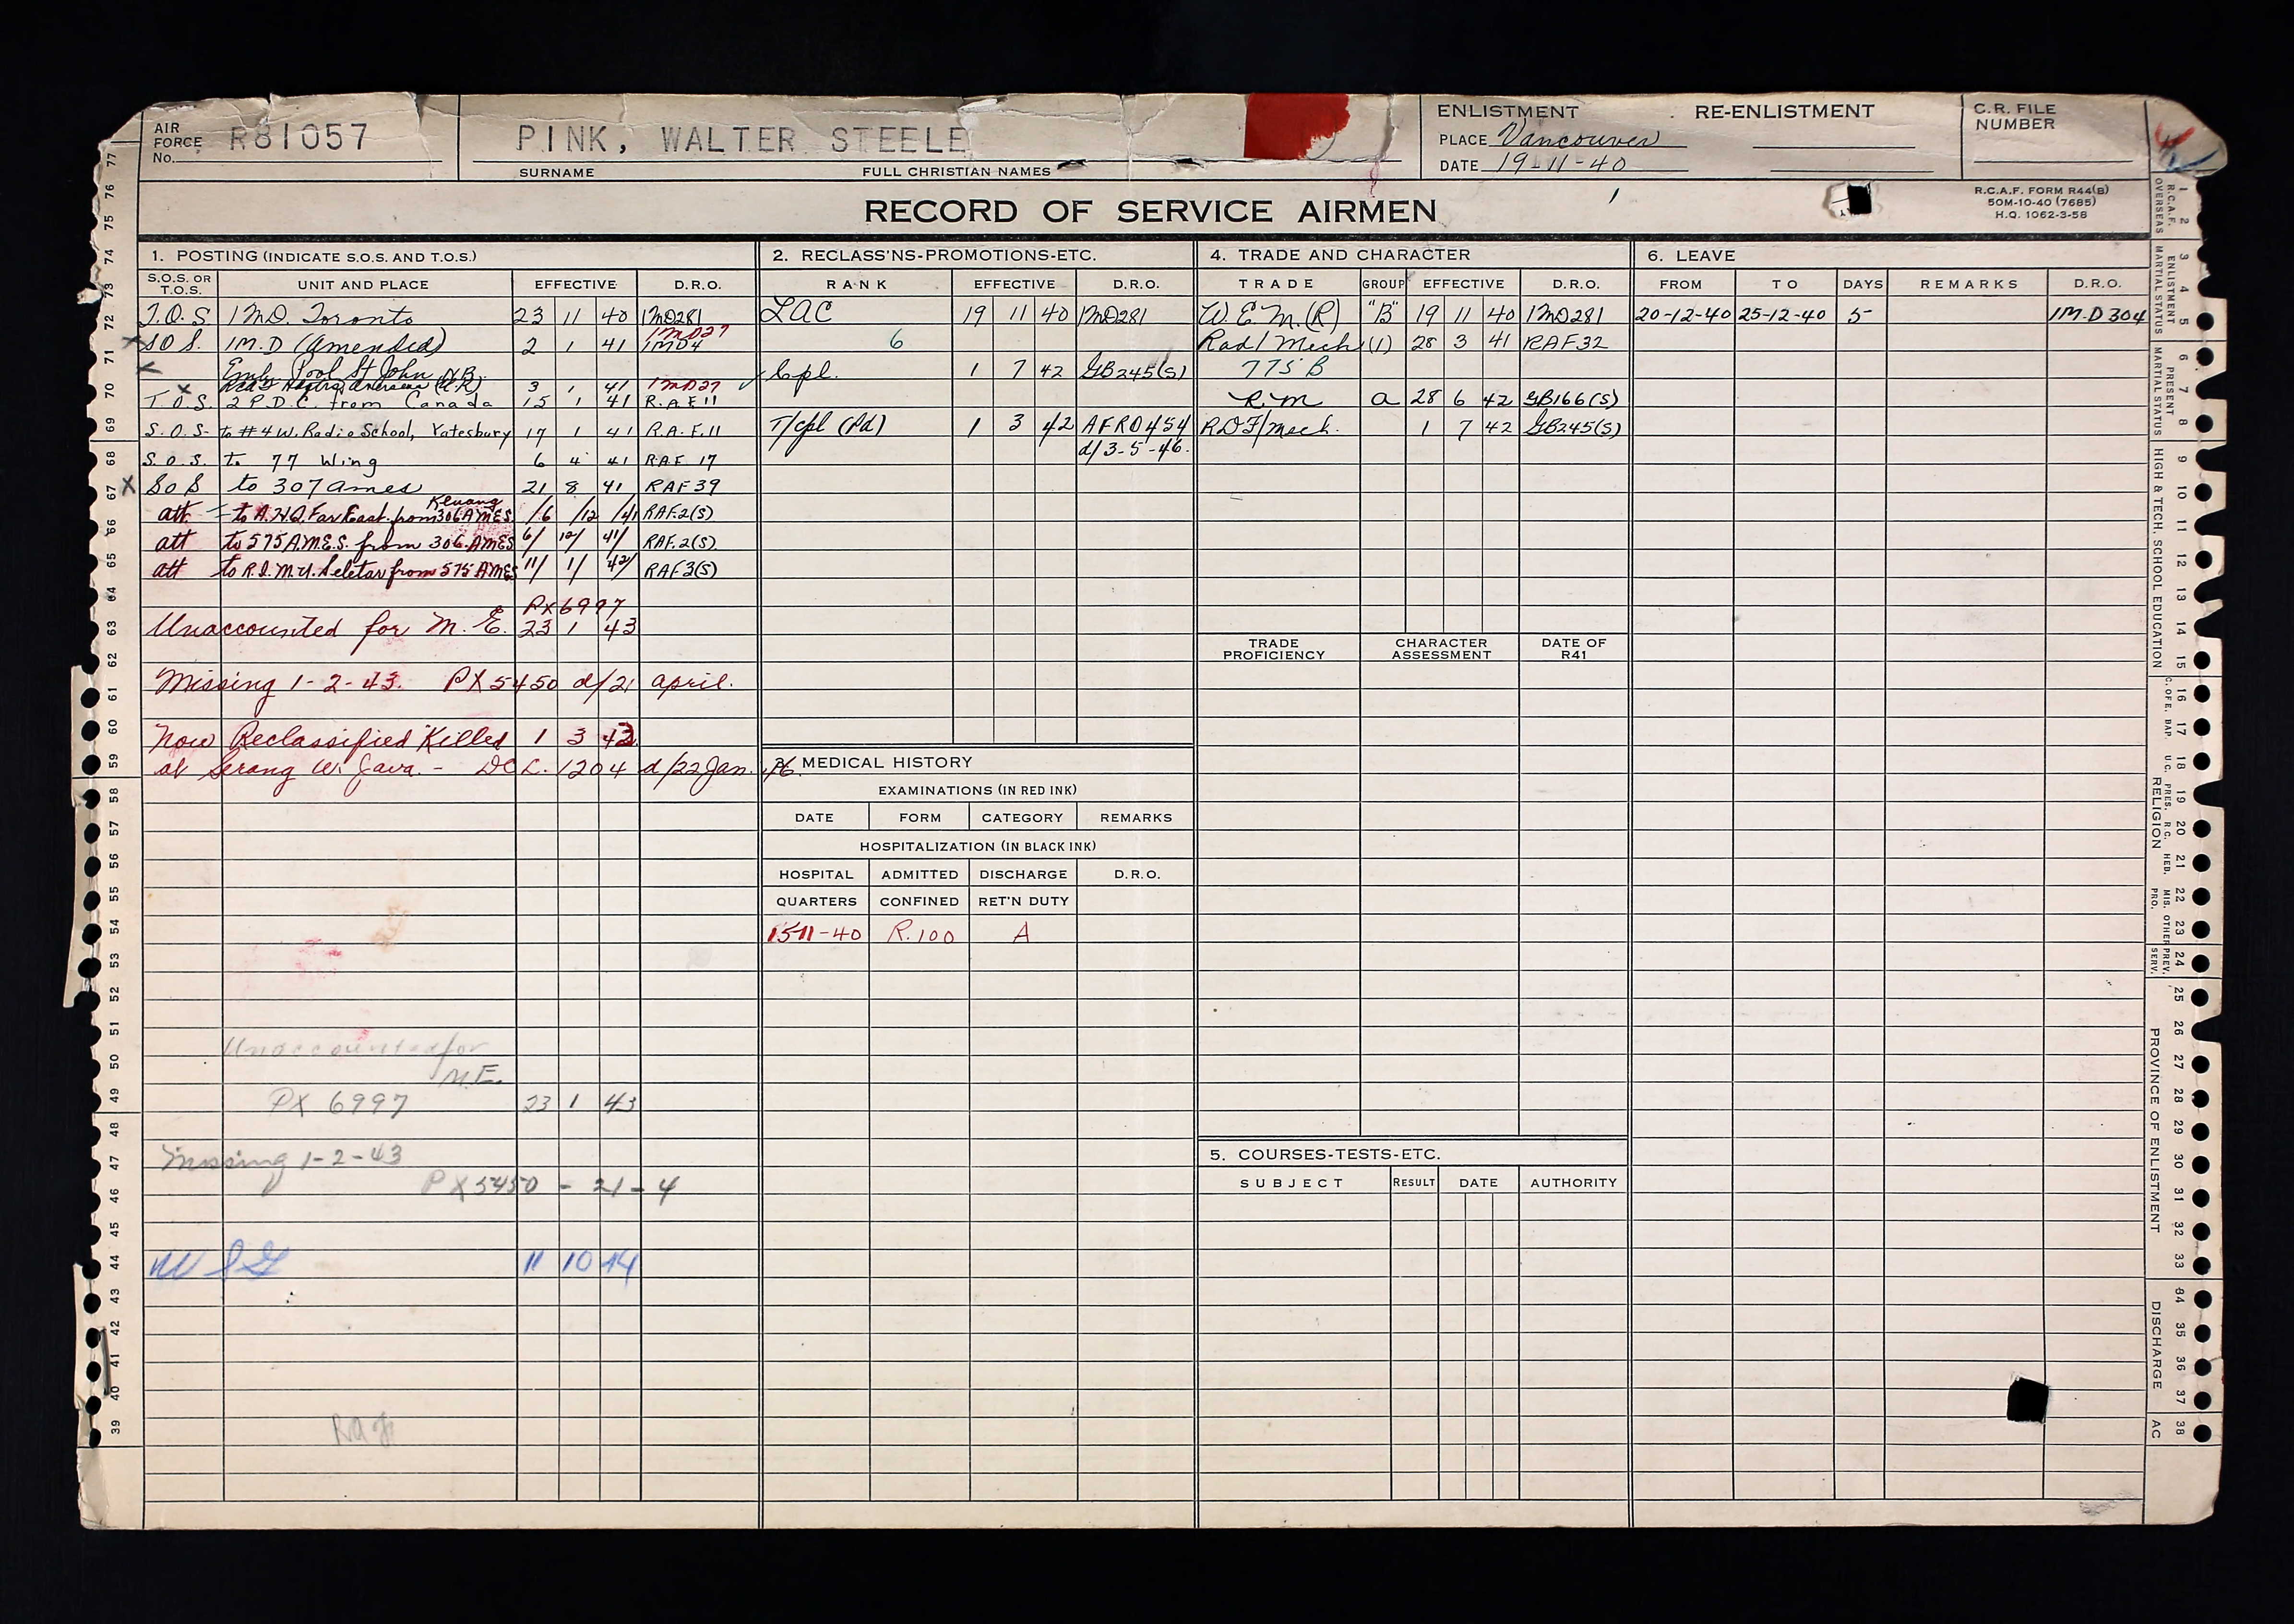 AIR FORCE No. R81057
PINK, WALTER STEELE
SURNAME FULL CHRISTIAN NAMES
ENLISTMENT RE-ENLISTMENT
PLACE Vancouver
DATE 19-11-40
C.R. FILE NUMBER
RECORD OF SERVICE AIRMEN
R.C.A.F. FORM R44(B)
50M-10-40 (7685)
H.Q. 1062-3-58
1. POSTING (INDICATE S.O.S. AND T.O.S.)
S.O.S. OR T.O.S. UNIT AND PLACE EFFECTIVE D.R.O.
T.O.S 1 M.D. Toronto 23 11 40 1MD281
1MD27
SOS. 1M.D (Amended) 2 1 41 1MD4
Emb. Pool St John N.B.
Overseas (U.K) 3 1 41 1MD27
T.O.S. 2 P.D.C. from Canada 15 1 41 R.A.F.11
S.O.S- to #4 W. Radio School, Yatesbury 17 1 41 R.A.F.11
S.O.S. to 77 Wing 6 4 41 R.A.F. 17
SoS to 307 ames 21 8 41 RAF39
Kluang
att to A.H.Q. Far East from 306 AMES. /6 /12 /41 RAF.2(S)
att to 575 A.M.E.S. from 306 AMES 6/ 12/ 41/ RAF.2(S)
att to R.I.M.U. Seletar from 575 AMES 11/ 1/ 42/ RAF3(S)
PX6997
Unaccounted for M. E. 23 1 43
Missing 1-2-43. PX5450 d/21 april.
Now Reclassified Killed 1 3 42
at Serang W. Java. - DCL. 1204 d/22 Jan. 46.
Unaccounted for
M.E.
PX 6997 23 1 43
Missing 1-2-43
PX5450 - 21-4
11 10 44
2. RECLASS'NS-PROMOTIONS-ETC.
RANK EFFECTIVE D.R.O.
LAC 19 11 40 1MD281
6
Cpl. 1 7 42 GB245(S)
T/cpl (Pd) 1 3 42 AFRO454
d/3-5-46.
3. MEDICAL HISTORY
EXAMINATIONS (IN RED INK)
DATE FORM CATEGORY REMARKS
HOSPITALIZATION (IN BLACK INK)
HOSPITAL ADMITTED DISCHARGE D.R.O.
QUARTERS CONFINED RET'N DUTY
15-11-40 R.100 A
4. TRADE AND CHARACTER
TRADE GROUP EFFECTIVE D.R.O.
W.E.M.(R) "B" 19 11 40 1MD281
Rad/Mech (1) 28 3 41 RAF32
775 B
R.M a 28 6 42 GB166(S)
RDF/Mech. 1 7 42 GB245(S)
TRADE PROFICIENCY CHARACTER ASSESSMENT DATE OF R41
5. COURSES-TESTS-ETC.
SUBJECT RESULT DATE AUTHORITY
6. LEAVE
FROM TO DAYS REMARKS D.R.O.
20-12-40 25-12-40 5- 1M.D 304
77 76 75 74 73 72 71 70 69 68 67 66 65 64 63 62 61 60 59 58 57 56 55 54 53 52 51 50 49 48 47 46 45 44 43 42 41 40 39
1 2 3 4 5 6 7 8 9 10 11 12 13 14 15 16 17 18 19 20 21 22 23 24 25 26 27 28 29 30 31 32 33 34 35 36 37 38
R.C.A.F. OVERSEAS
ENLISTMENT MARTIAL STATUS
PRESENT MARTIAL STATUS
HIGH & TECH. SCHOOL EDUCATION
C. OF E. BAP. U.C. PRES. R.C. HEB. MIS. PRO. OTHER
RELIGION
PREV. SERV.
PROVINCE OF ENLISTMENT
DISCHARGE
AC